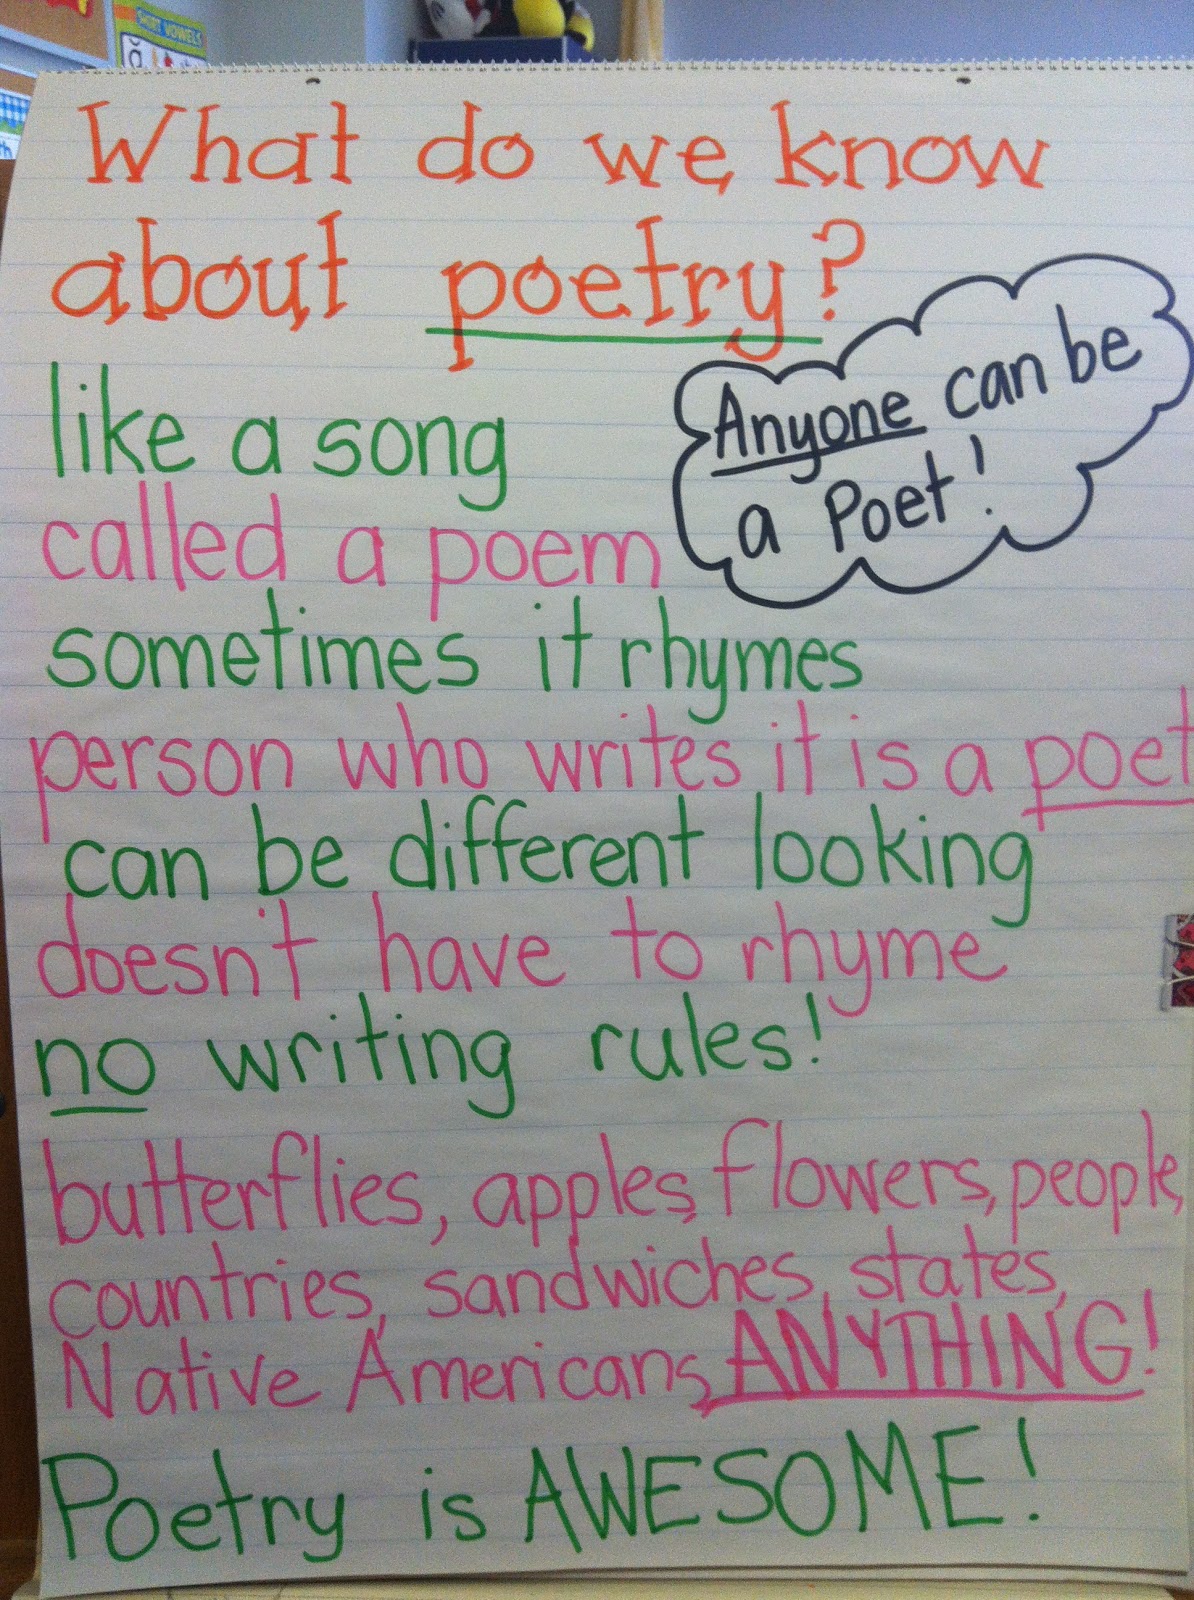 SHORT VOWELS
ă
What do we know
about poetry?
Anyone can be
a Poet!
like a song
called a poem
sometimes it rhymes
person who writes it is a poet
can be different looking
doesn't have to rhyme
no writing rules!
butterflies, apples, flowers, people,
countries, sandwiches, states,
Native Americans, ANYTHING!
Poetry is AWESOME!